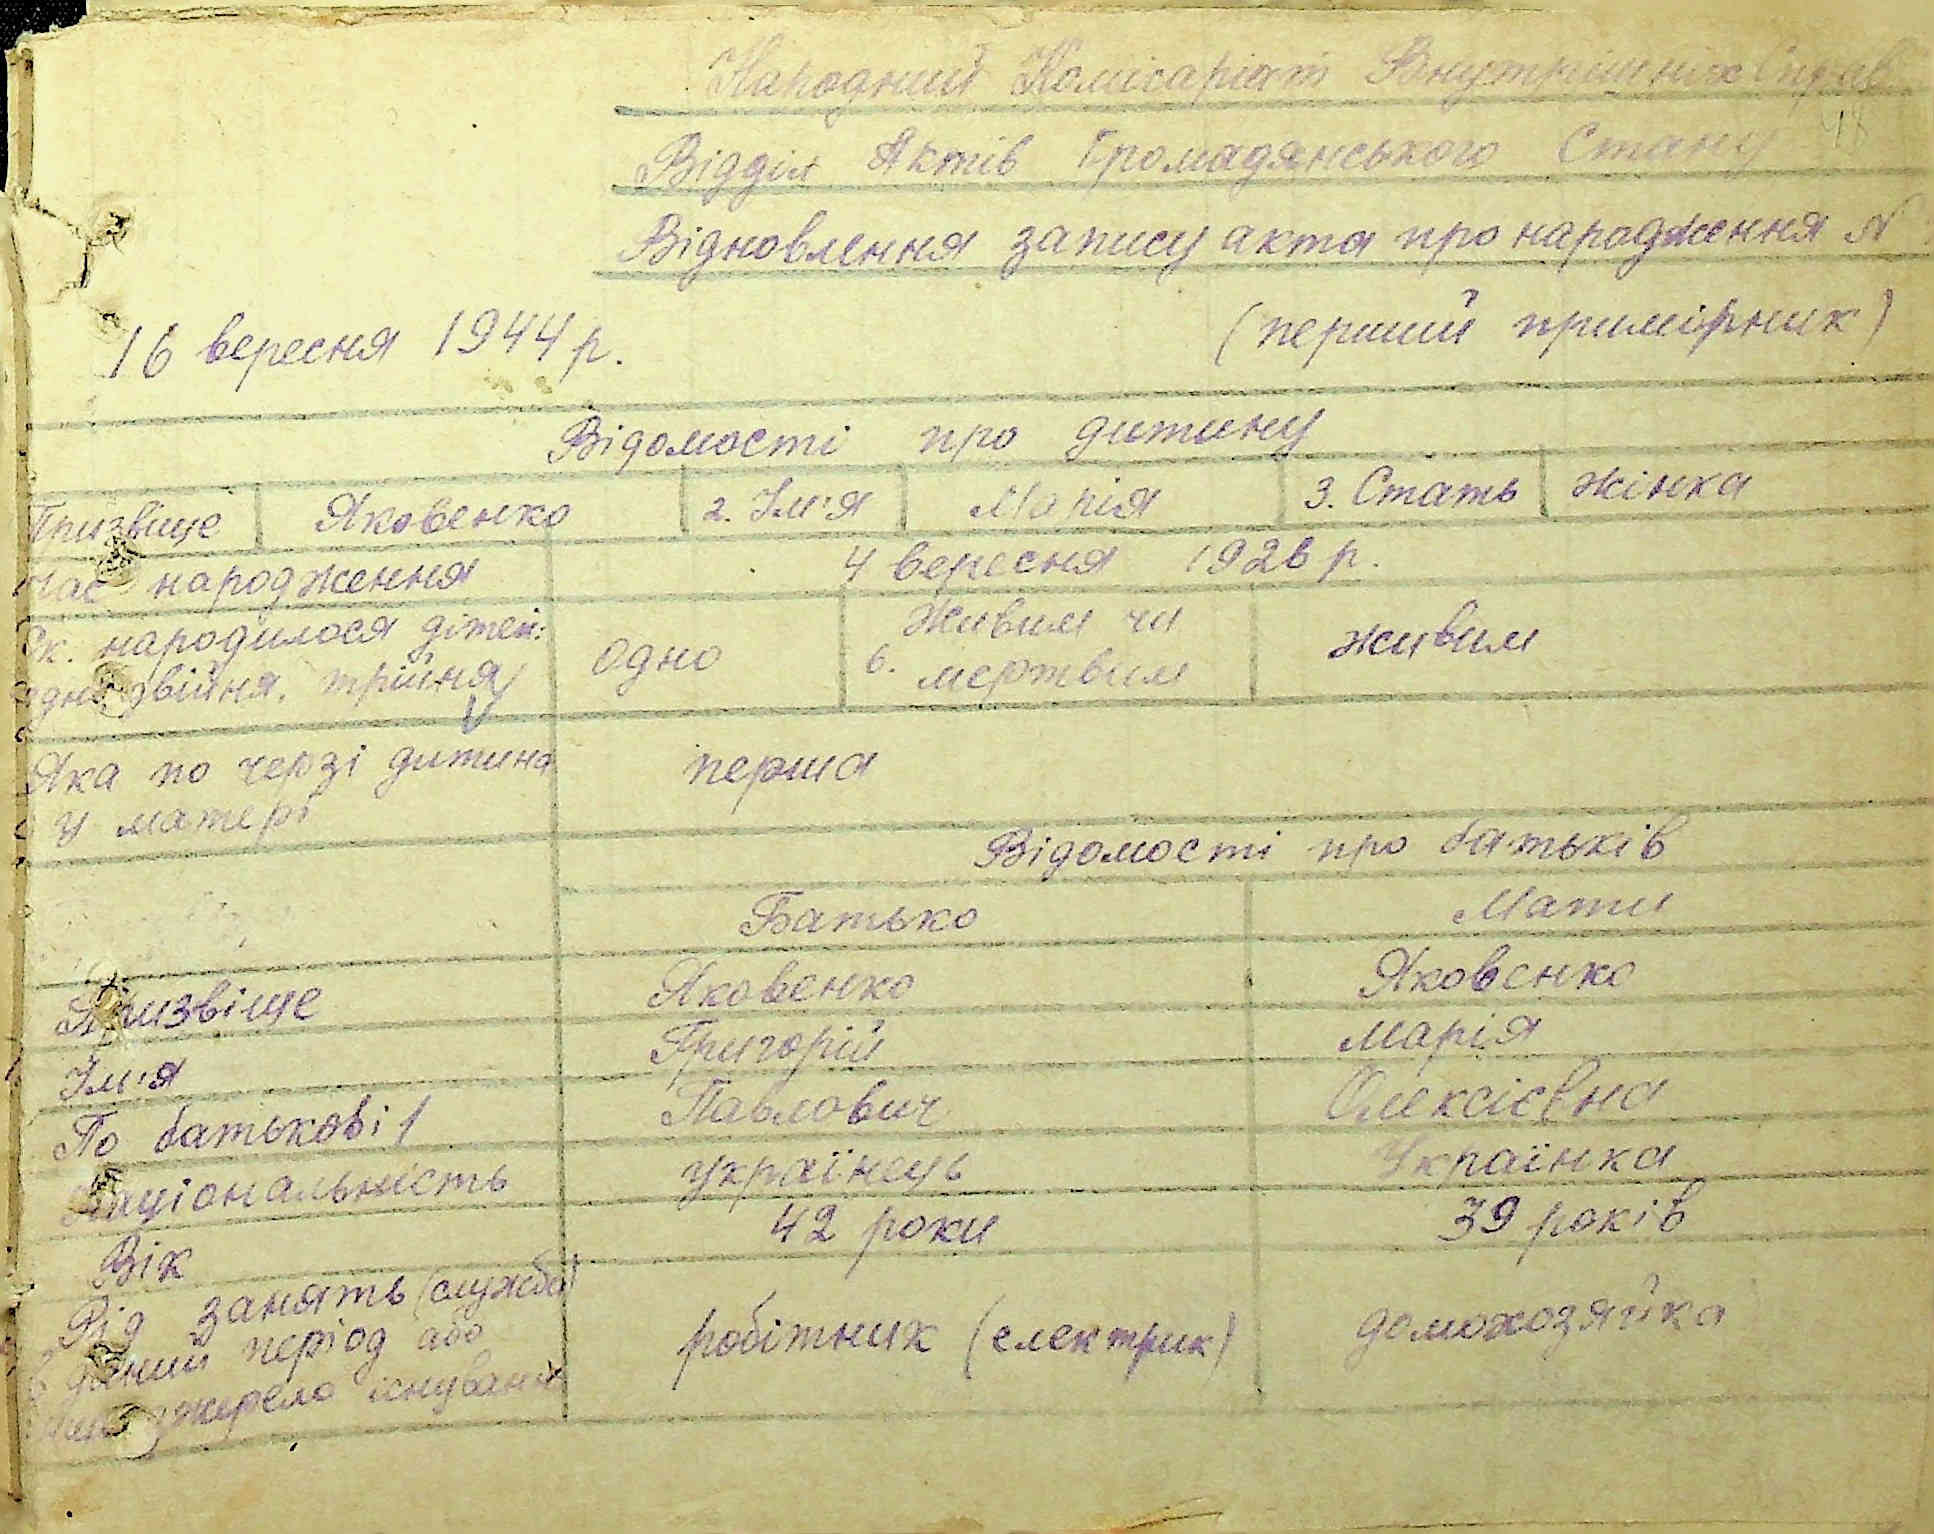 Народний Комісаріят Внутрішніх Справ
Відділ Актів Громадянського Стану
Відновлення запису акта про народження №
16 вересня 1944 р.
(перший примірник)
Відомості про дитину
Призвіще Яковенко 2. Ім'я Марія 3. Стать жінка
Час народження 4 вересня 1926 р.
Ск. народилося дітей: Одно 6. Живим чи живим
одно двійня, трійня мертвим
Яка по черзі дитина перша
у матері
Відомості про батьків
Батько Мати
Призвіще Яковенко Яковенко
Ім'я Григорій Марія
По батькові Павлович Олексієвна
Національність українець Українка
Вік 42 роки 39 років
Від занять (служба)
в даний період або робітник (електрик) домохозяйка
джерело існування